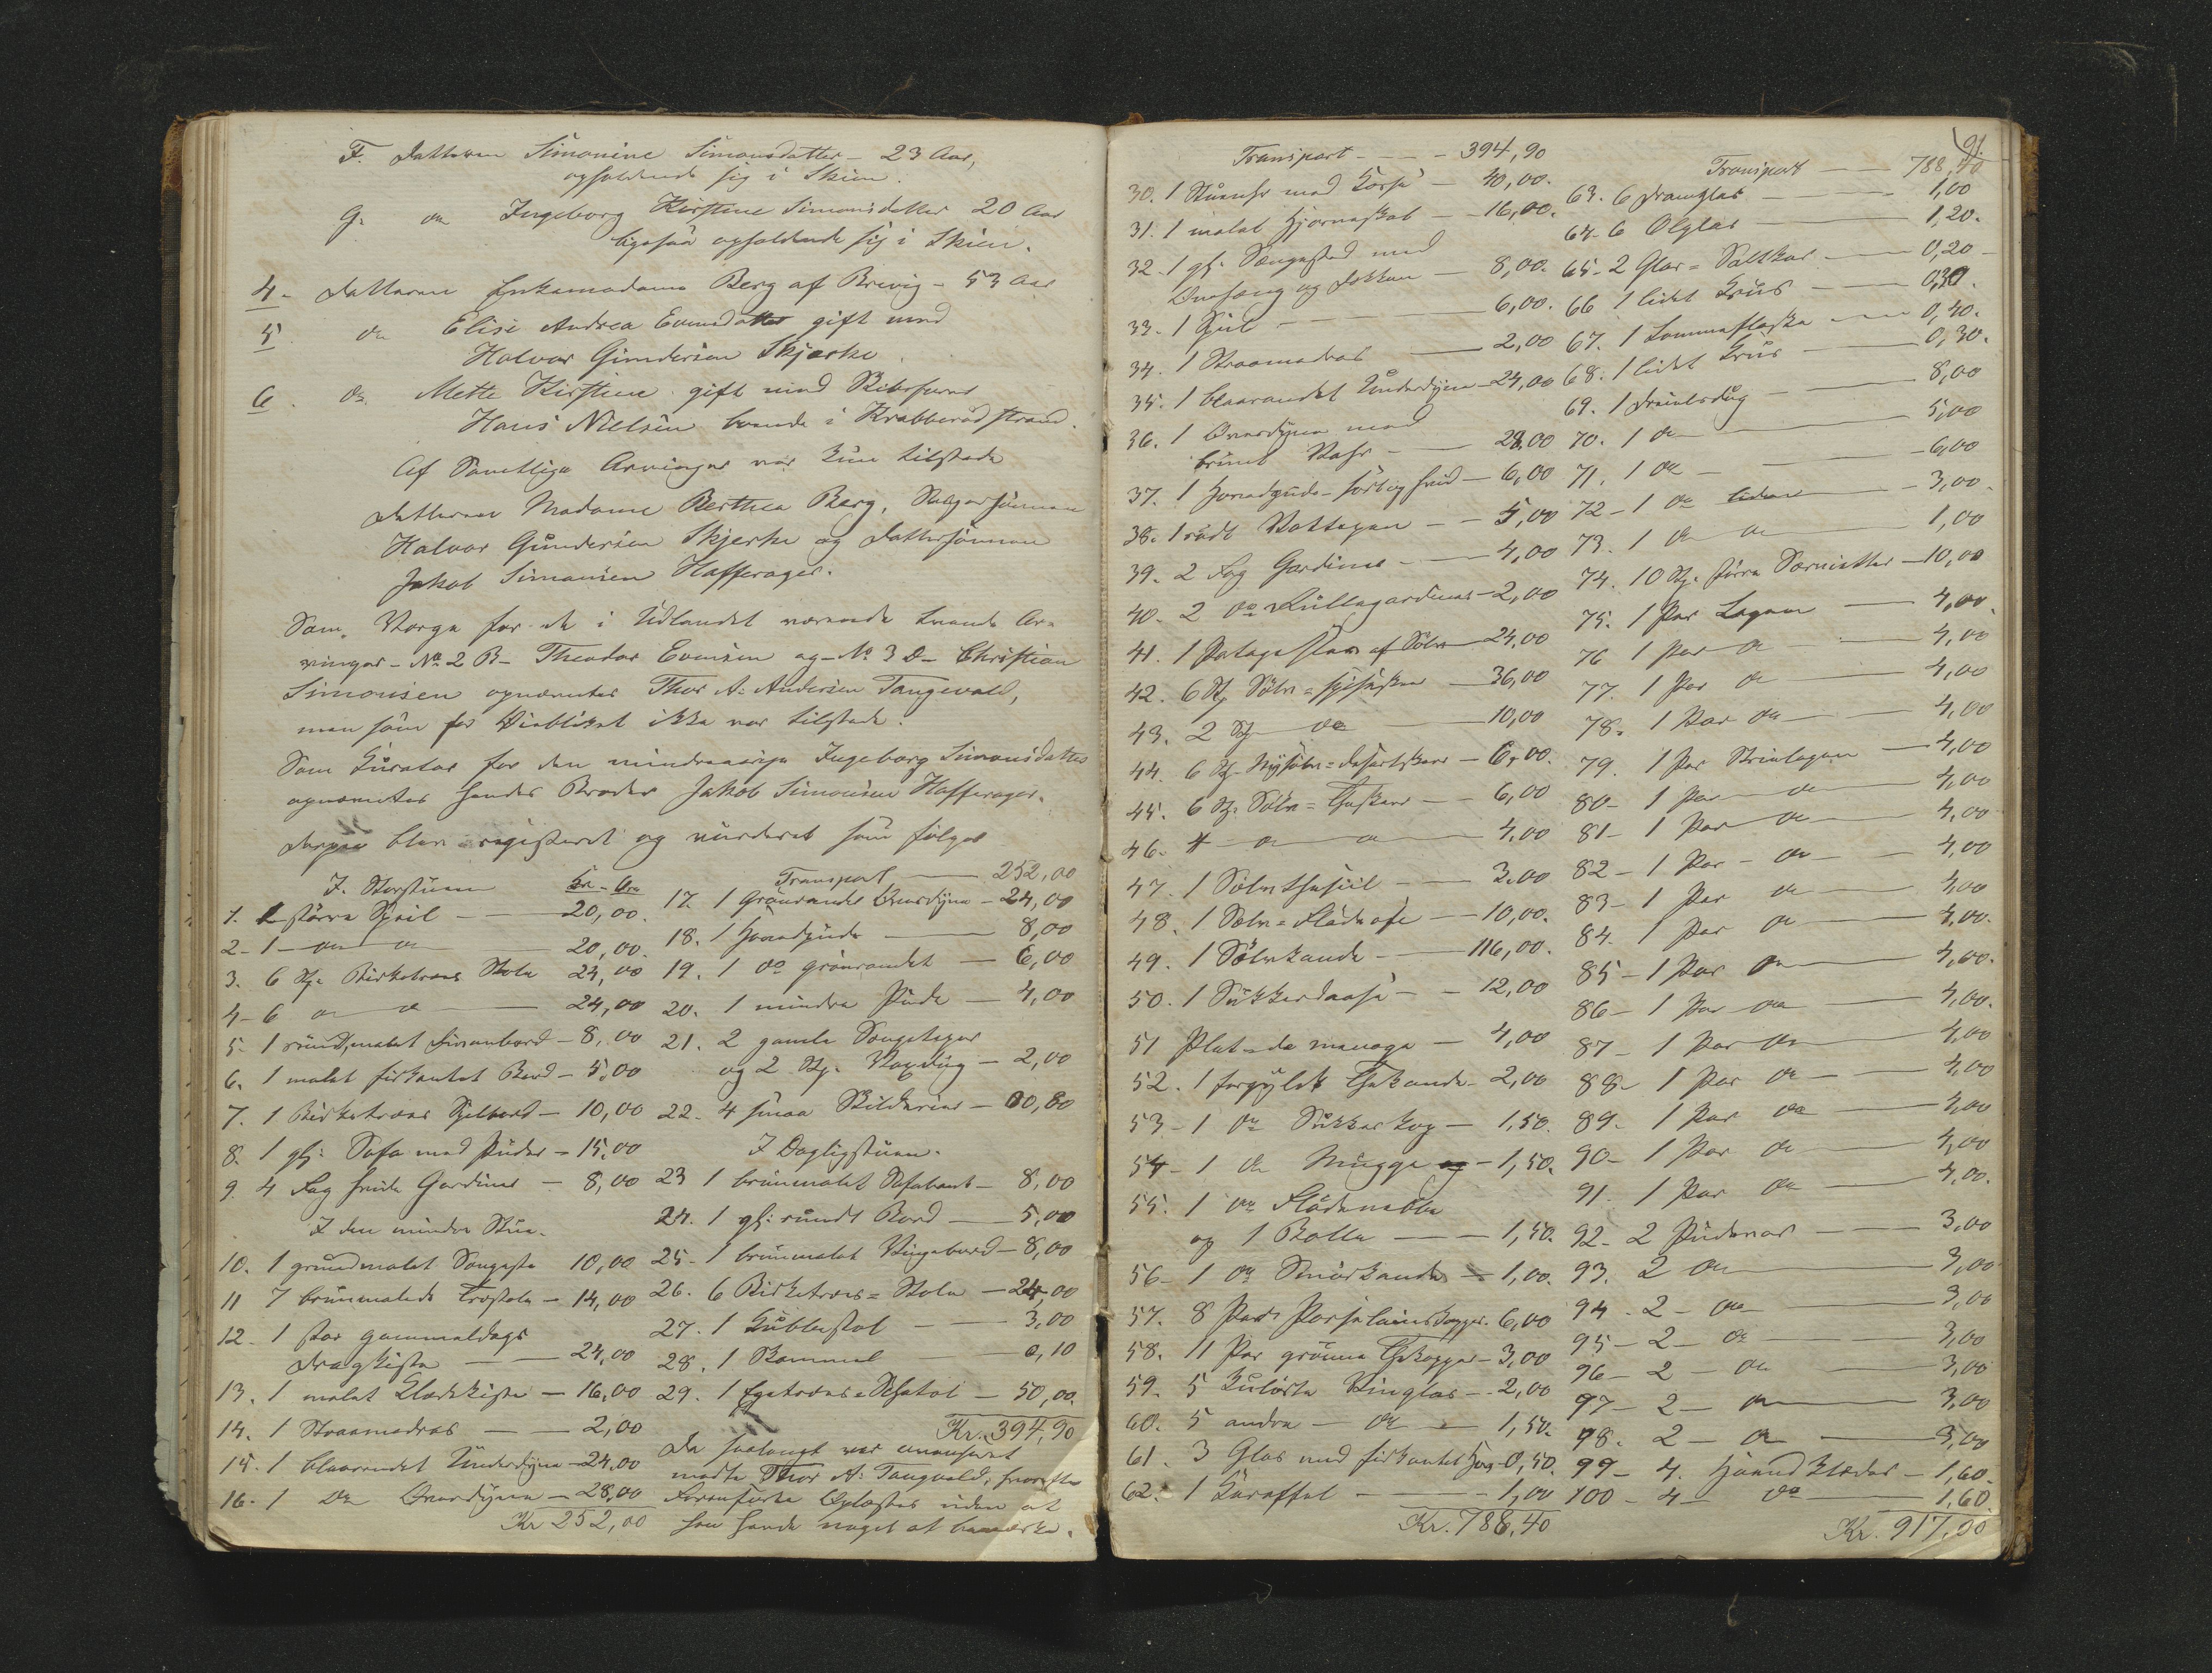 F. Datteren Simonine Simonsdatter - 23 Aar,
opholdende sig i Skien.
G. do Ingeborg Kirstine Simonsdatter 20 Aar
ligesaa opholdende sig i Skien.
4. Datteren Enkemadame Berg af Brevig - 53 Aar
5. do Elise Andrea Evensdatter gift med
Halvor Gundersen Skjerke.
6. do Mette Kirstine gift med Skibsfører
Hans Nielsen boende i Krabberødstrand.
Af Samtlige Arvinger var kun tilstede
Datteren Madame Berthea Berg, Svigersønnen
Halvor Gundersen Skjerke og Dattersønnen
Jakob Simonsen Hafsager.
Som Værge for de i Udlandet værende tvende Ar-
vinger - No 2 B - Theodor Evensen og - No 3 D - Christian
Simonsen opnævntes Thor A. Andersen Tangevald,
men som for Øieblikket ikke var tilstede.
Som Kurator for den mindreaarige Ingeborg Simonsdatter
opnævntes hendes Broder Jakob Simonsen Hafsager.
Derpaa blev registeret og vurderet som følger
I Storstuen Kr. Øre
1. 1 større Speil - 20,00.
2 - 1 do do 20,00.
3. 6 St. Birketræes Stole 24,00
4 - 6 do do 24,00
5. 1 rundt, malet Divanbord - 8,00
6. 1 malet firkantet Bord - 5,00
7. 1 Birketræes Spilbord - 10,00
8. 1 gl: Sofa med Puder - 15,00
9. 4 Fag hvide Gardiner - 8,00
I den mindre Stue.
10. 1 grundmalet Sengested 10,00
11 7 brunmalede Træstole - 14,00
12. 1 stor gammeldags
Dragkiste - 24,00
13. 1 malet Klædekiste - 16,00
14. 1 Straamadras - 2,00
15. 1 blaarandet Underdyne - 24,00
16. 1 do Overdyne - 28,00
Kr 252,00
Transport - 252,00
17. 1 Grønrandet Overdyne - 24,00
18. 1 Hovedpude - 8,00
19. 1 do grønrandet - 6,00
20. 1 mindre Pude - 4,00
21. 2 gamle Sengetepper
og 2 St. Voxdug - 2,00
22. 4 smaa Skilderier - 00,80
I Dagligstuen.
23 1 brunmalet Sofabænk - 8,00
24. 1 gl: rundt Bord - 5,00
25 - 1 brunmalet Vingebord - 8,00
26. 6 Birketræes = Stole - 24,00
27. 1 Kubbestol - 3,00
28. 1 Skammel - 0,10
29. 1 Egetræes = Schatol - 50,00.
Kr. 394,90
Da saalangt var avanseret
mødte Thor A. Tangvald, hvorefter
Foranførte Oplæstes uden at
han havde noget at bemærke.
91.
Transport - 394,90
30. 1 Stueuhr med Kasse - 40,00.
31. 1 malet Hjørneskab - 16,00.
32 - 1 gl. Sengested med
Omhæng og Lokken - 8,00.
33. 1 Speil - 6,00.
34. 1 Straamadras - 2,00
35. 1 blaarandet Underdyne - 24,00
36. 1 Overdyne med
brunt Vahr - 28,00
37. 1 Hovedpude - sort og hvid - 6,00
38. 1 rødt Vattepen - 5,00
39. 2 Fag Gardiner - 4,00
40. 2 do Rullegardiner - 2,00
41. 1 Potageskee af Sølv - 24,00
42. 6 St. Sølv = Spiseskee - 36,00
43. 2 St do 10,00
44. 6 St. Nysølv = Desertskeer - 6,00.
45. 6 St. Sølv = Theskeer - 6,00
46. 4 do do 4,00
47. 1 Sølvthesiil - 3,00
48. 1 Sølv = Flødeøse - 10,00.
49. 1 Sølvkande - 116,00.
50. 1 Sukkerdaase - 12,00
51 Plat de menage - 4,00
52. 1 forgyldt Thekande - 2,00
53 - 1 do Sukkerkop - 1,50.
54 - 1 do Mugge - 1,50.
55. 1 do Flødemugge
og 1 Bolle - 1,50.
56 - 1 do Smørkande - 1,00.
57. 8 Par Porselainskopper. 6,00
58. 11 Par grønne Thekopper - 3,00
59. 5 Kulørte Vinglas - 2,00
60. 5 andre - do 1,50.
61. 3 Glas med firkantet Fod - 0,50.
62. 1 Karaffel - 1,00
Kr. 788,40
Transport - 788,40
63. 6 Dramglas - 1,00
64 - 6 Ølglas - 1,20.
65 - 2 Glas = Saltkar - 0,20
66 1 lidet Krus - 0,30.
67. 1 Lommeflaske - 0,40.
68. 1 lidet Krus - 0,30.
69. 1 Dreielsdug - 8,00
70. 1 do 5,00
71. 1 do - 6,00
72 - 1 do liden - 3,00.
73. 1 do do 1,00
74. 10 St. større Servietter - 10,00
75. 1 Par Lagen - 4,00.
76 1 Par do 4,00
77. 1 Par do 4,00
78. 1 Par do 4,00
79. 1 Par Strielagen - 4,00
80 - 1 Par do 4,00
81 - 1 Par do 4,00
82 - 1 Par - do 4,00
83 - 1 Par do 4,00
84. 1 Par do 4,00.
85 - 1 Par do 4,00.
86 - 1 Par do 4,00.
87 - 1 Par do 4,00
88 - 1 Par do 4,00
89. 1 Par do 4,00
90 - 1 Par do 4,00
91. 1 Par do 4,00.
92 - 2 Pudevar - 3,00
93. 2 do 3,00
94 - 2 - do 3,00
95 - 2 - do 3,00
96 - 2 - do 3,00
97 - 2 - do 3,00
98. 2 - do 3,00
99 - 4. Haandklæder - 1,60.
100 - 4 - do 1,60.
Kr. 917,00